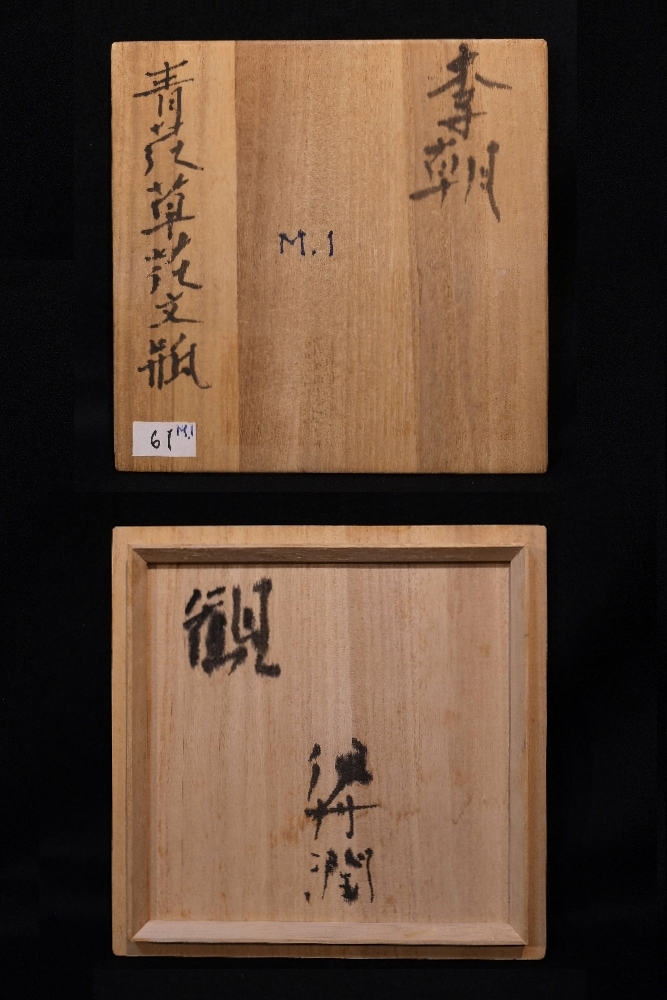 李朝
青花草花文瓶
M.1
61 M.1
観
伊丹潤